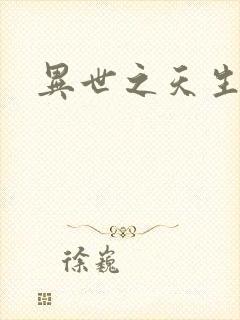 異世之天生
徐巍